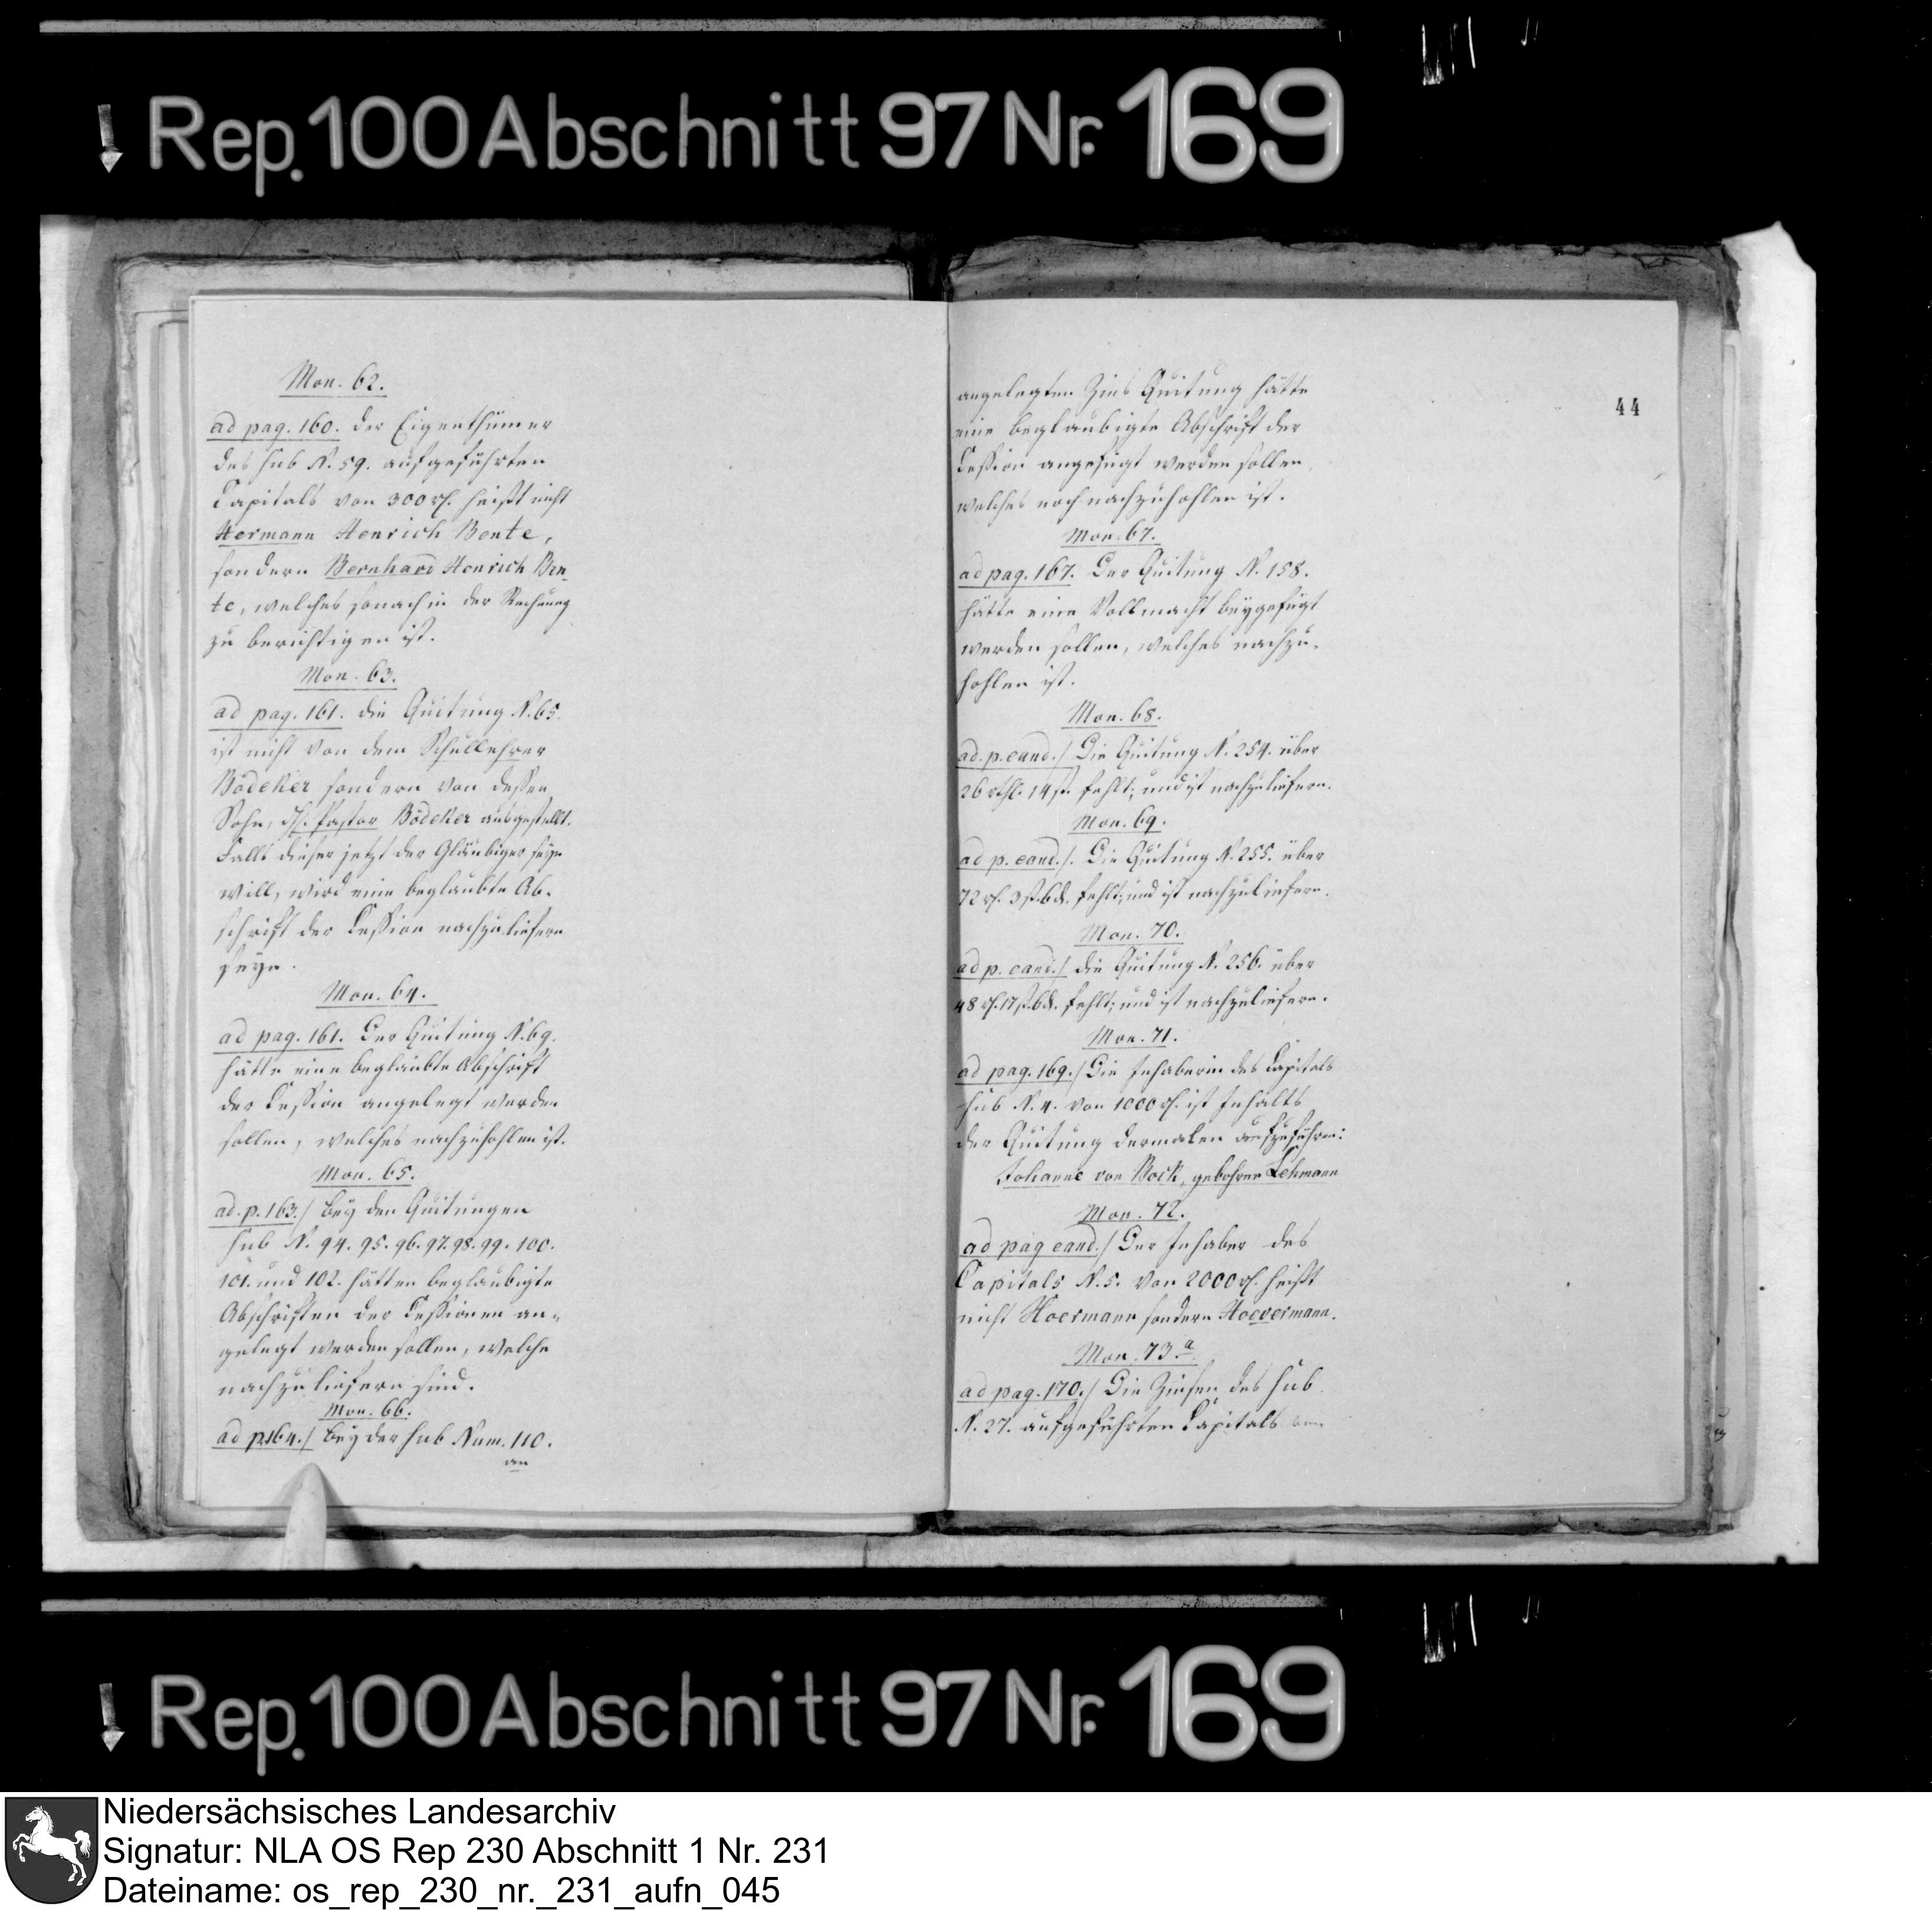 Rep. 100 Abschnitt 97 Nr. 169
Mon. 62.
ad pag. 160. der Eigenthümer
des sub N. 59. aufgeführten
Capitals von 300 rℓ. heißt nicht
Hermann Henrich Bente,
sondern Bernhard Henrich Ben-
te, welches sonach in der Rechnung
zu berichtigen ist.
Mon. 63.
ad pag. 161. die Quitung N. 65.
ist nicht von dem Schullehrer
Bödeker sondern von dessen
Sohn, H. Pastor Bödeker ausgestellt.
Falls dieser jetzt der Gläubiger seyn
will, wird eine beglaubte Ab-
schrift der Cession nachzuliefern
seyn.
Mon. 64.
ad pag. 161. Der Quitung N. 69.
hätte eine beglaubte Abschrift
der Cession angelegt werden
sollen, welches nachzuhohlen ist.
Mon. 65.
ad. p. 163./ Bey den Quitungen
sub N. 94. 95. 96. 97. 98. 99. 100.
101. und 102. hätten beglaubigte
Abschriften der Cessionen an-
gelegt werden sollen, welche
nachzuliefern sind.
Mon. 66.
ad p. 164./ Bey der sub Num. 110.
an
44
angelegten Zins Quitung hätte
eine beglaubigte Abschrift der
Cession angefügt werden sollen,
welches noch nachzuhohlen ist.
Mon. 67.
ad pag. 167. Der Quitung N. 158.
hätte eine Vollmacht beygefügt
werden sollen, welches nachzu-
hohlen ist.
Mon. 68.
ad. p. eand./ Die Quitung N. 254. über
26 rthl. 14 ß. fehlt; und ist nachzuliefern.
Mon. 69.
ad p. eand./. Die Quitung N. 255. über
72 rℓ. 3 ß. 6 d. fehlt; und ist nachzuliefern.
Mon. 70.
ad p. eand./ die Quitung N. 256. über
48 rℓ. 17 ß. 6 d. fehlt; und ist nachzuliefern.
Mon. 71.
ad pag. 169./ Die Inhaberin des Capitals
sub N. 4. von 1000 rℓ. ist Inhalts
der Quitung dermalen aufzuführen:
Johanne von Bock, gebohrne Lehmann
Mon. 72.
ad pag eand./ Der Inhaber des
Capitals N. 5. von 2000 rℓ. heißt
nicht Hoermann sondern Hoevermann.
Mon. 73.a
ad pag. 170./ Die Zinsen des sub
N. 27. aufgeführten Capitals von
Rep. 100 Abschnitt 97 Nr. 169
Niedersächsisches Landesarchiv
Signatur: NLA OS Rep 230 Abschnitt 1 Nr. 231
Dateiname: os_rep_230_nr._231_aufn_045